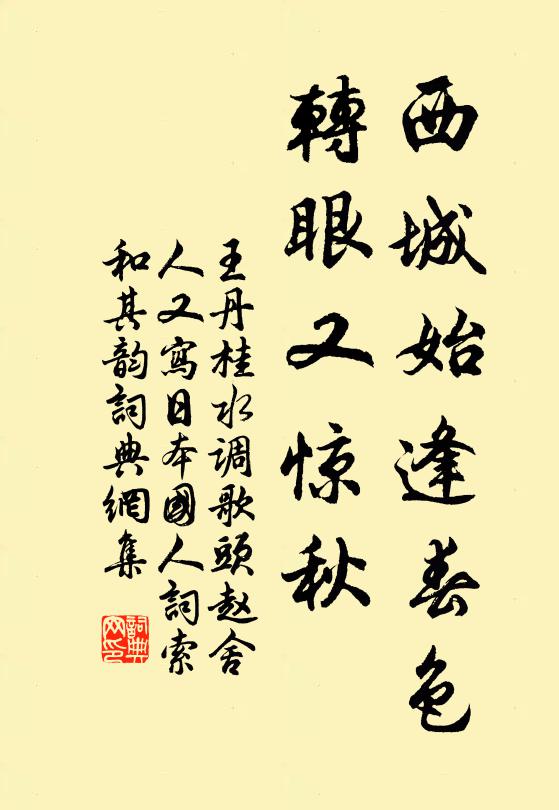 西城始逢春色
轉眼又惊秋
王丹桂水调歌頭赵舍
人又寫日本國人詞索
和其韵詞典網集
詞典
网印